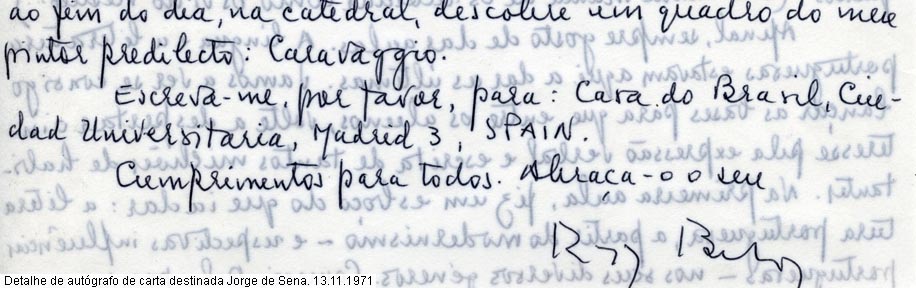 ao fim do dia, na catedral, descobre um quadro do meu
pintor predilecto: Caravaggio.
Escreva-me, por favor, para: Casa do Brasil, Ciu-
dad Universitaria, Madrid 3, SPAIN.
Cumprimentos para todos. Abraça-o o seu
Ruy Belo
Detalhe de autógrafo de carta destinada Jorge de Sena. 13.11.1971